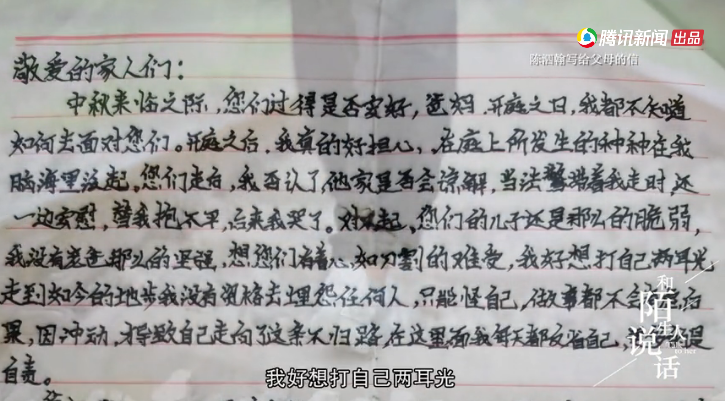 腾讯新闻 出品
陈泗翰写给父母的信
敬爱的家人们：
中秋来临之际，您们过得是否安好，爸妈.开庭之日，我都不知道
如何去面对您们。开庭之后.我真的好担心，在庭上所发生的种种在我
脑海里泛起。您们走后，我否认了他家是否会谅解，当法警搭着我走时，还
一边安慰，替我抱不平，后来我哭了。对不起、您们的儿子还是那么的脆弱，
我没有老爸那么的坚强，想您们有着心如刀割的难受，我好想打自己两耳光
走到如今的地步我没有资格去埋怨任何人，只能怪自己，做事都不会 后
果，因冲动，导致自己走向了这条不归路，在这里面我每天都反省自己， 是
自责。
和陌生人说话
我好想打自己两耳光